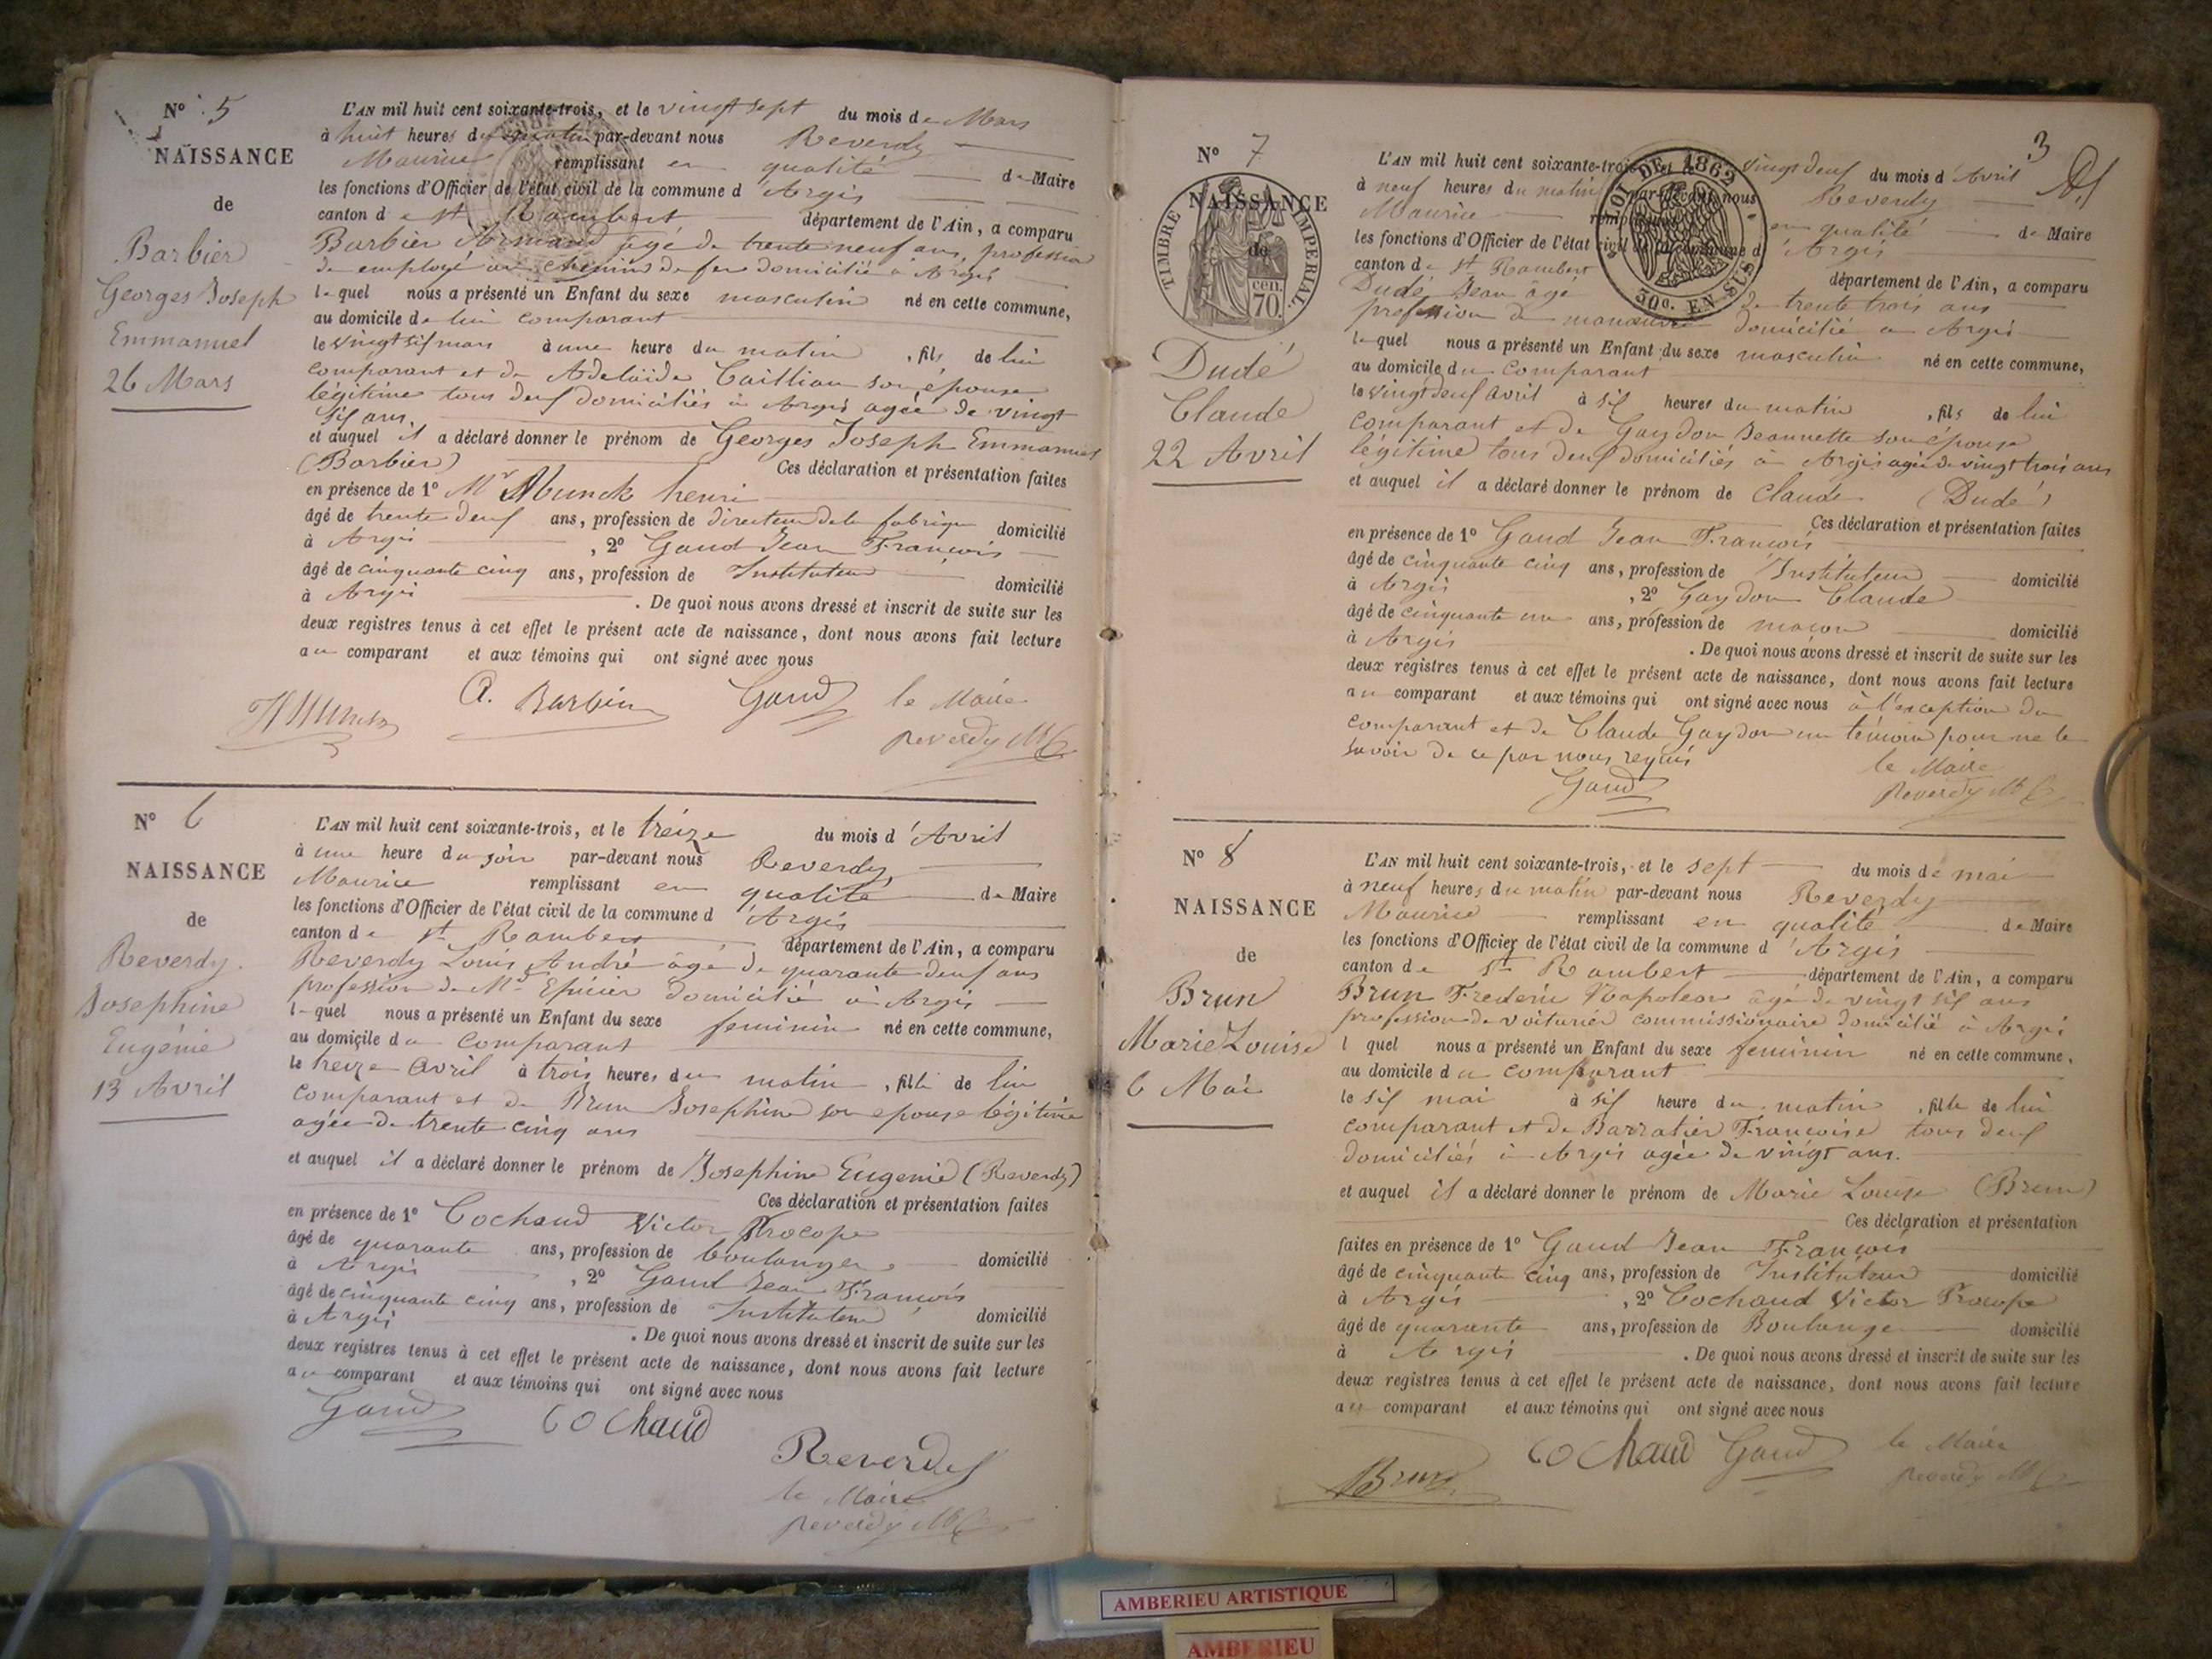 N° 5
NAISSANCE
de
Barbier
Georges Joseph
Emmanuel
26 Mars
L'AN mil huit cent soixante-trois, et le vingt sept du mois de Mars
à huit heures du matin par-devant nous Reverdy
Maurice remplissant en qualité de Maire
les fonctions d'Officier de l'état civil de la commune d'Argis
canton de St Rambert département de l'Ain, a comparu
Barbier Armand âgé de trente neuf ans, profession
de employé au chemins de fer domicilié à Argis
lequel nous a présenté un Enfant du sexe masculin né en cette commune,
au domicile de lui comparant
le vingt sif mars à une heure du matin, fils de lui
comparant et de Adelaïde Caillian son épouse
légitime tous deuf domiciliés à Argis agée de vingt
sif ans.
et auquel il a déclaré donner le prénom de Georges Joseph Emmanuel
(Barbier) Ces déclaration et présentation faites
en présence de 1° Mr Munck henri
âgé de trente deuf ans, profession de directeur de la fabrique domicilié
à Argis, 2° Gaud Jean François
âgé de cinquante cinq ans, profession de Instituteur domicilié
à Argis. De quoi nous avons dressé et inscrit de suite sur les
deux registres tenus à cet effet le présent acte de naissance, dont nous avons fait lecture
au comparant et aux témoins qui ont signé avec nous
A. Barbier Gaud le Maire
Reverdy
N° 6
NAISSANCE
de
Reverdy
Josephine
Eugénie
13 Avril
L'AN mil huit cent soixante-trois, et le treize du mois d'Avril
à une heure du soir par-devant nous Reverdy
Maurice remplissant en qualité de Maire
les fonctions d'Officier de l'état civil de la commune d'Argis
canton de St Rambert département de l'Ain, a comparu
Reverdy Louis André âgé de quarante deuf ans
profession de Md Epicier domicilié à Argis
lequel nous a présenté un Enfant du sexe feminin né en cette commune,
au domicile du comparant
le treize avril à trois heures du matin, fille de lui
comparant et de Brun Josephine son epouse légitime
agée de trente cinq ans
et auquel il a déclaré donner le prénom de Josephine Eugenie (Reverdy)
Ces déclaration et présentation faites
en présence de 1° Cochaud Victor Procope
âgé de quarante ans, profession de boulanger domicilié
à Argis, 2° Gaud Jean François
âgé de cinquante cinq ans, profession de Instituteur domicilié
à Argis. De quoi nous avons dressé et inscrit de suite sur les
deux registres tenus à cet effet le présent acte de naissance, dont nous avons fait lecture
au comparant et aux témoins qui ont signé avec nous
Gaud Cochaud
Reverdy
le Maire
Reverdy
3
N° 7
NAISSANCE
de
TIMBRE IMPERIAL.
cen.
70.
Dudé
Claude
22 Avril
LOI DE 1862
50c. EN SUS
L'AN mil huit cent soixante-trois, et le vingt deuf du mois d'Avril
à neuf heures du matin par-devant nous Reverdy
Maurice remplissant en qualité de Maire
les fonctions d'Officier de l'état civil de la commune d'Argis
canton de St Rambert département de l'Ain, a comparu
Dudé Jean âgé de trente trois ans
profession de manœuvre domicilié à Argis
lequel nous a présenté un Enfant du sexe masculin né en cette commune,
au domicile du comparant
le vingt deuf avril à sif heures du matin, fils de lui
comparant et de Gaydon Jeannette son épouse
légitime tous deuf domiciliés à Argis agée de vingt trois ans
et auquel il a déclaré donner le prénom de Claude (Dudé)
Ces déclaration et présentation faites
en présence de 1° Gaud Jean François
âgé de cinquante cinq ans, profession de Instituteur domicilié
à Argis, 2° Gaydon Claude
âgé de cinquante un ans, profession de maçon domicilié
à Argis. De quoi nous avons dressé et inscrit de suite sur les
deux registres tenus à cet effet le présent acte de naissance, dont nous avons fait lecture
au comparant et aux témoins qui ont signé avec nous à l'exception du
comparant et de Claude Gaydon un témoin pour ne le
savoir de ce par nous requis
Gaud le Maire
Reverdy
N° 8
NAISSANCE
de
Brun
Marie Louise
6 Mai
L'AN mil huit cent soixante-trois, et le sept du mois de mai
à neuf heures du matin par-devant nous Reverdy
Maurice remplissant en qualité de Maire
les fonctions d'Officier de l'état civil de la commune d'Argis
canton de St Rambert département de l'Ain, a comparu
Brun Frederic Napoleon âgé de vingt sif ans
profession de voiturier commissionnaire domicilié à Argis
lquel nous a présenté un Enfant du sexe feminin né en cette commune,
au domicile du comparant
le sif mai à sif heure du matin, fille de lui
comparant et de Barratier Françoise tous deuf
domiciliés à Argis agée de vingt ans.
et auquel il a déclaré donner le prénom de Marie Louise (Brun)
Ces déclaration et présentation
faites en présence de 1° Gaud Jean François
âgé de cinquante cinq ans, profession de Instituteur domicilié
à Argis, 2° Cochaud Victor Procope
âgé de quarante ans, profession de Boulanger domicilié
à Argis. De quoi nous avons dressé et inscrit de suite sur les
deux registres tenus à cet effet le présent acte de naissance, dont nous avons fait lecture
au comparant et aux témoins qui ont signé avec nous
Brun Cochaud Gaud le Maire
Reverdy
AMBERIEU ARTISTIQUE
AMBERIEU